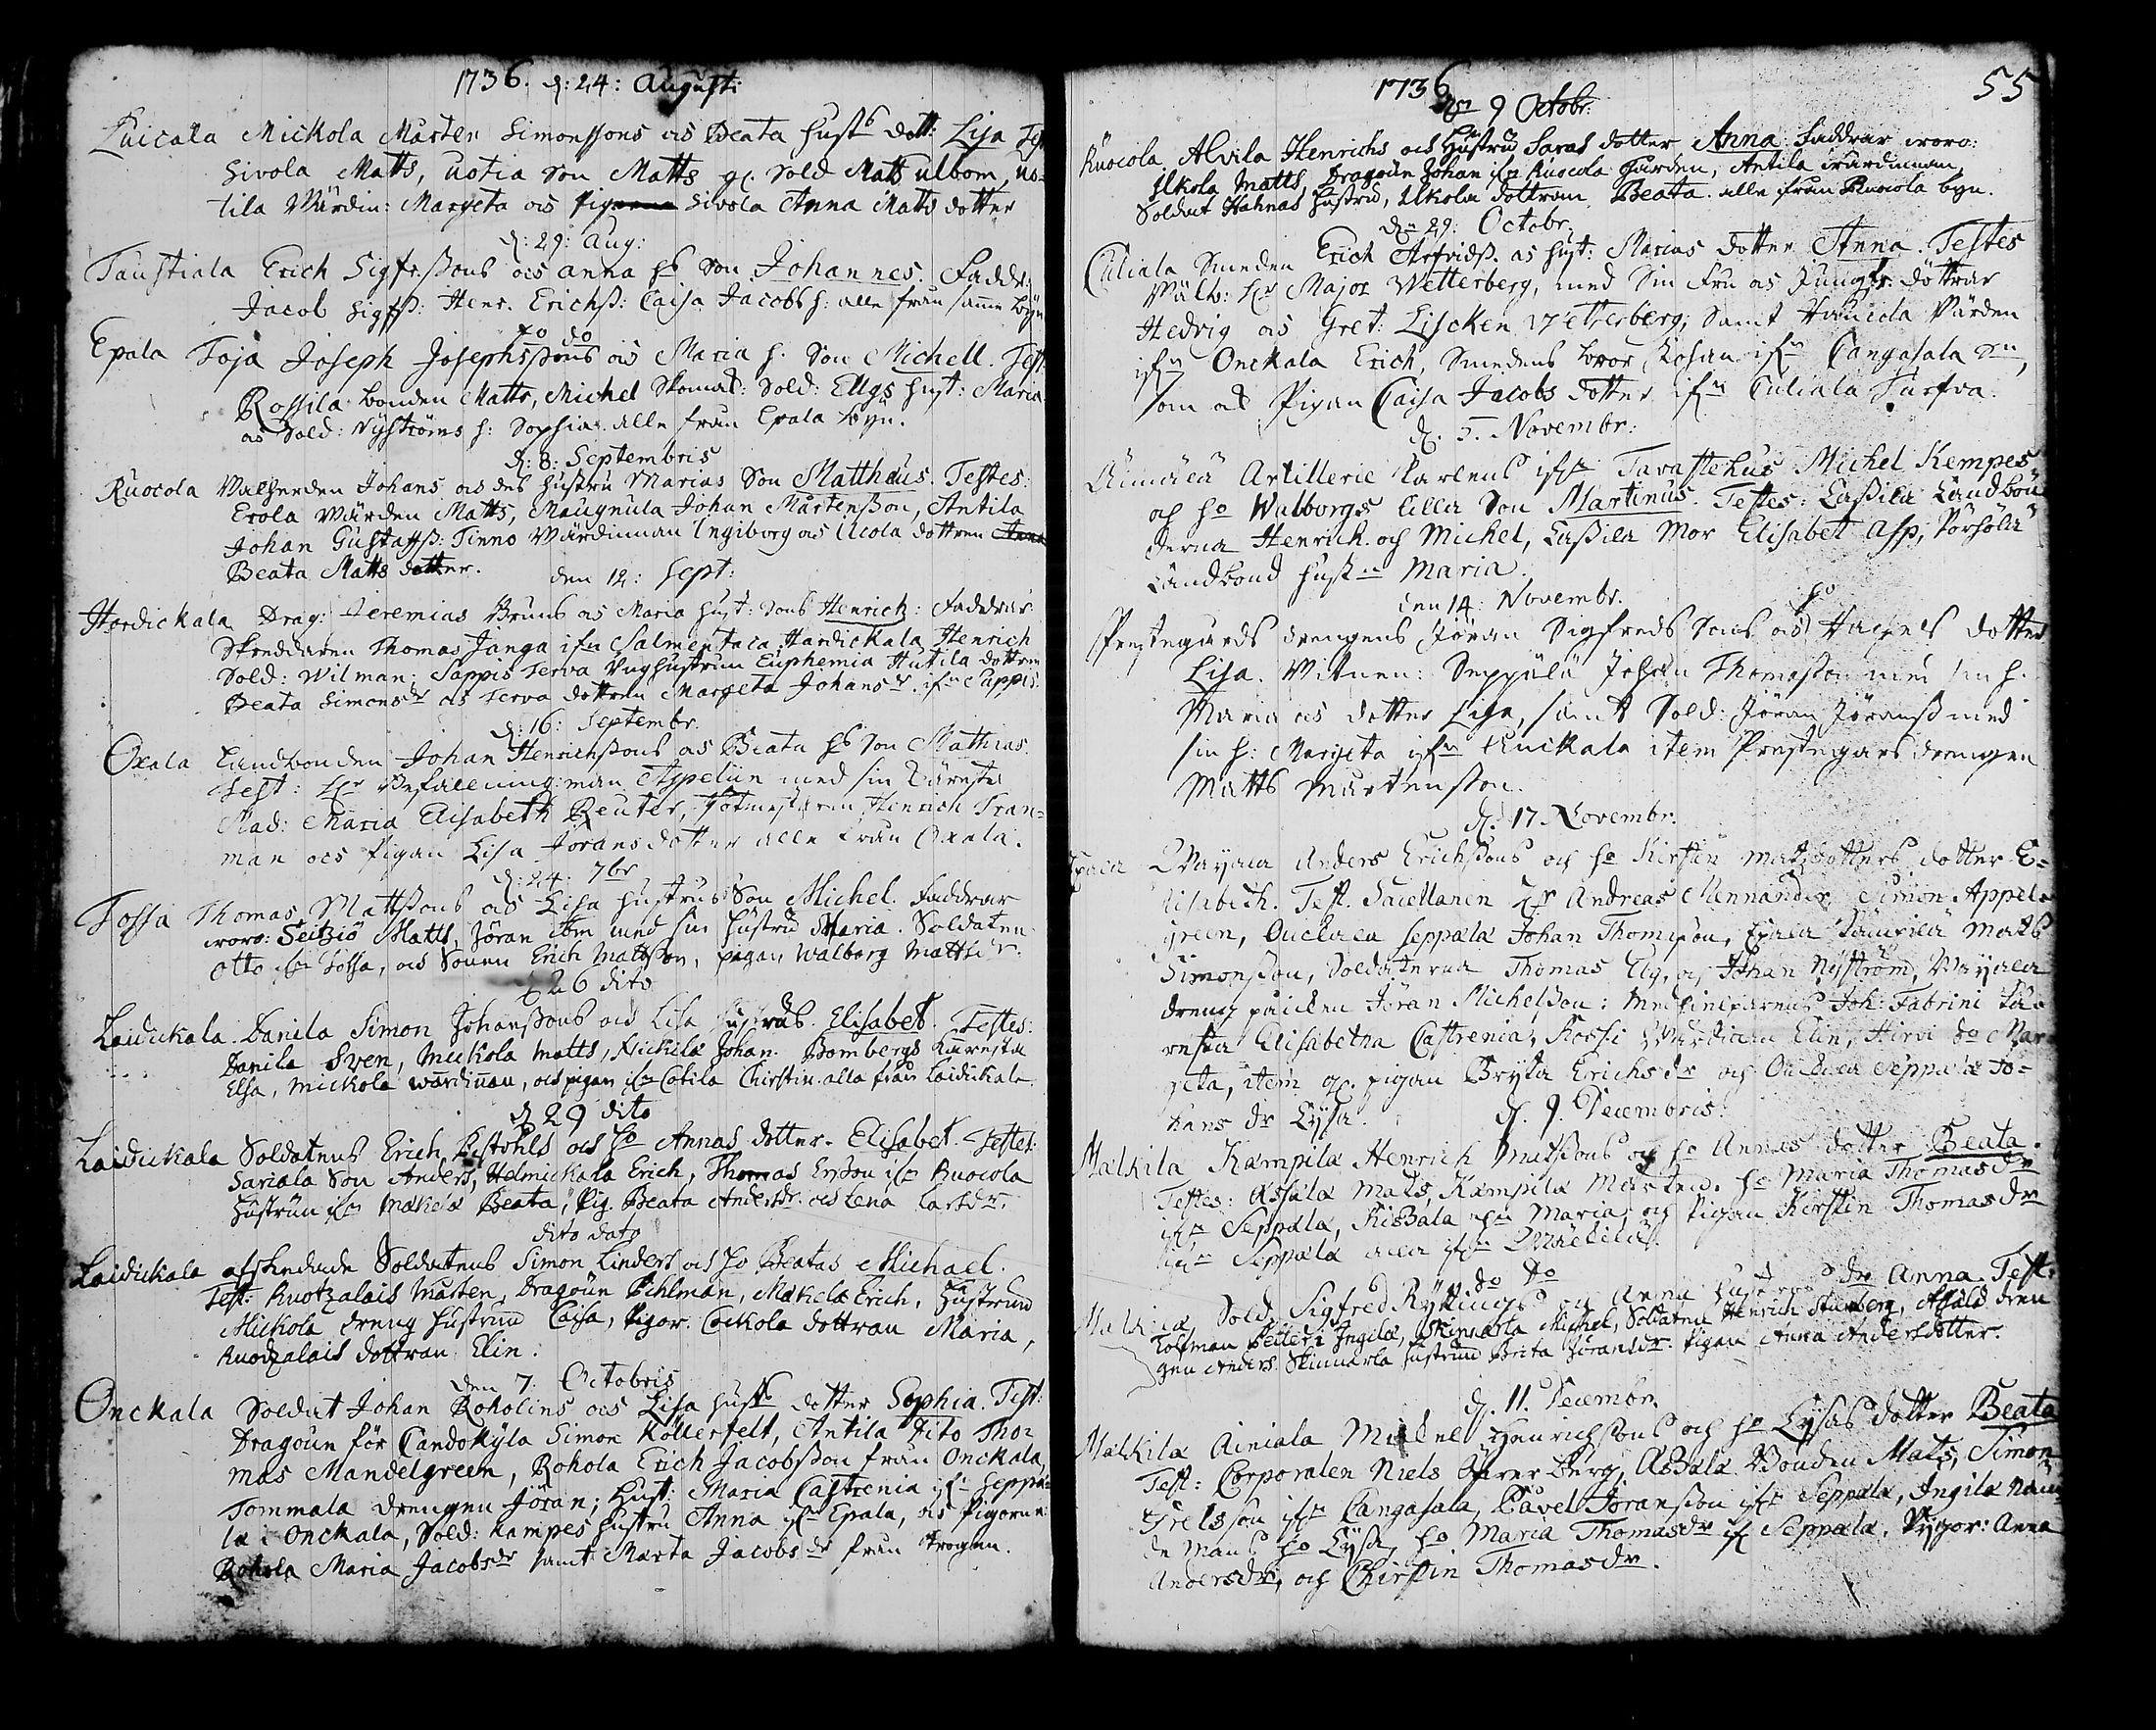 1736. d: 24: Augusti
Luicala Mickola Mårten Simonssons och Beata hust: dott: Lisa Test
Sivola Matts, Uotia Son Matts gl. Sold Matts ulbom, Uo-
tila Wärdin: Margeta och Sivola Anna Matts dotter
d: 29: Aug:
Taustiala Erich Sigfrssons och Anna hs Son Johannes. Faddr:
Jacob Sigfss: Henr. Erichss: Caisa Jacobs h: alle från samme by
do do
Epala Toja Joseph Josephssons och Maria h. Son Michell. Test:
Rossila bonden Matts, Michel Skomak: Sold: Ellgs hust: Maria
och Sold: Nyströms h: Sophia. alle från Epala byn.
d: 8: Septembris
Ruocola Johans och des hustru Marias Son Matthæus. Testes:
Erola Wärden Matts, Maugnula Johan Mårtensson, Antila
Johan Gustafss: Tinno Wärdinnan Ingiborg och Ucola dottren
Beata Matts dotter.
den 12: Sept:
Hordickala Drag: Jeremias Bruns och Maria hust: Sons Henrich: Faddrar
Skreddaren Thomas Janga ifrn Salmentaca, Hardickala Henrich
Sold: Wilman: Sappis Terva Unghustrun Euphemia Hutila dottren
Beata Simonsdr och Terva dottren Margeta Johansdr. ifrn Sappis.
d: 16: Septembr.
Oxala Landbonden Johan Henrichssons och Beata hs Son Mathias.
Test: Hr Befallningsman Appelin med sin Käresta
Mad: Maria Elisabeth Reuter, Henrich Tran-
man och Pigan Lisa Jörans dotter alle från Oxala.
d: 24: 7br
Tossa Thomas Mattssons och Lisa hustrus Son Michel. Faddrar
woro: Seitziö Matts, Jöran ibm med sin hustru Maria. Soldaten
Otto ifrn Tossa, och Sonen Erich Mattsson, pigan Walborg Mattsdr.
d 26 dito
Laidickala. Danila Simon Johanssons och Lisa hustrus. Elisabet. Testes:
Danila Sven, Mickola Matts, Nickila Johan. Bombergs Käresta
Elsa, Mickola wärdinnan, och pigan ifrn Cotila Chirstin. alla från Laidickala.
d 29 dito
Laidickala Soldatens Erich och Ho Annas dotter. Elisabet. Testes:
Sariala Son Anders, Helmickala Erich, Thomas Ersson ifrn Ruocola
hustrun ifrn Mäkelä Beata, Pig. Beata Andersdr. och Lena Larsdr.
dito dato
Laidickala afskedade Soldatens Simon Linders och Ho Beatas Michael.
Test: Ruotzalais Mårten, Dragoun Pihlman, Mäkelä Erich, Hustrun
Mickola dreng hustrun Caisa, Pigor. Cockola dottran Maria,
Ruotzalais dottran Elin.
den 7: Octobris
Onckala Soldat Johan Roholins och Lisa hust: dotter Sophia. Test:
Dragoun för Candokylä Simon Köllerfelt, Antila Dito Tho-
mas Mandelgreen, Rohola Erich Jacobsson från Onckala,
Tommala drengen Jöran; Hust: Maria Castrenia ifrn Seppä-
lä i Onckala, Sold: Kampes hustru Anna ifrn Epala, och Pigorne:
Rohola Maria Jacobsdr samt Marta Jacobsdr från

1736 55
den 9 Octobr:
Ruocola Alvila Henrichs och Hustru Saras dotter Anna. Faddrar woro:
Ilkola Matts, Dragoun Johan ifrn Ruocola Gården, Antila wärdinnan,
Soldat Hahnas hustru, Ilkola dottran Beata. alle från Ruocola byn.
den 29: Octobr.
Culiala Smeden Erich Arfvidss. och hust: Marias dotter Anna. Testes
Hr Major Wetterberg, med Sin Fru och Jungfr: döttrar
Hedvig och Gret: Liscken Wetterberg; Samt Haucola Wärden
ifrn Onckala Erich, Smedens bror Johan ifrn Cangasala
som och Pigan Caisa Jacobs dotter ifrn Culiala
d. 5. Novembr:
Äimälä Artillerie Karlens ifrn Tavastehus Michel Kempes
och ho Walborgs lilla Son Martinus. Testes: Lassila Landbön-
derna Henrich och Michel, Lassila Mor Elisabet Asp, Pörhölä
Landbond Maria.
den 14: Novembr.
Prestegårds drengens Jöran Sigfreds Sons och ho dotter
Lisa. Witnen: Seppälä Johan Thomasson med sin h.
Maria och dotter Lisa, samt Sold: Jöran Jöranss med
sin h: Margeta ifrn Onckala item Prestegårds drengen
Matts Mårtensson.
d. 17. Novembr.
Epala Anders Erichssons och ho Kirstin Matsdotters dotter E-
lisabeth. Test. Sacellanen Hr Andreas Mennander, Simon Appel-
green, Onckala Seppälä Johan Thomsson, Epala Mats
Simonsson, Soldaterna Thomas Elg, och Johan Nyström,
dreng Jöran Michelsson: Joh: Fabrini Kä-
resta Elisabetha Castrenia, Rossi Wärdinna Elin, Hirvi do Mar-
geta, item gl. pigan Bryta Erichsdr och Onckala Seppälä Jo-
hans dr Lysa.
d. 9. Decembris.
Mälkilä Kämpilä Henrich Matssons och ho Annas dotter Beata.
Testes: Assälä Mats, Kämpilä Mårten. ho Maria Thomasdr
ifrn Seppälä, Maria, och Pigan Kirstin Thomasdr
Seppälä alla ifrn Mälkilä.
do do
Mälkilä Sold. Sigfred Rykings och Anna hustrus dr Anna. Test:
Tolfman Petter i Ingilä, Skinnarla Michel, Soldaten Henrich Sturberg, Assälä dren
gen Anders. Skinnarla hustrun Brita Jöransdr. Pigan Anna Andersdotter.
d. 11. Decembr.
Mälkilä Ainiala Michel Henrichssons och ho Lysas dotter Beata
Test: Corporalen Niels Berg, Assälä Bonden Mats, Simon
ifrn Cangasala, Pavel Jöransson ifrn Seppälä, Ingilä
ho Lysa, ho Maria Thomasdr ifrn Seppälä. Pygor: Anna
Andersdr, och Chirstin Thomasdr.